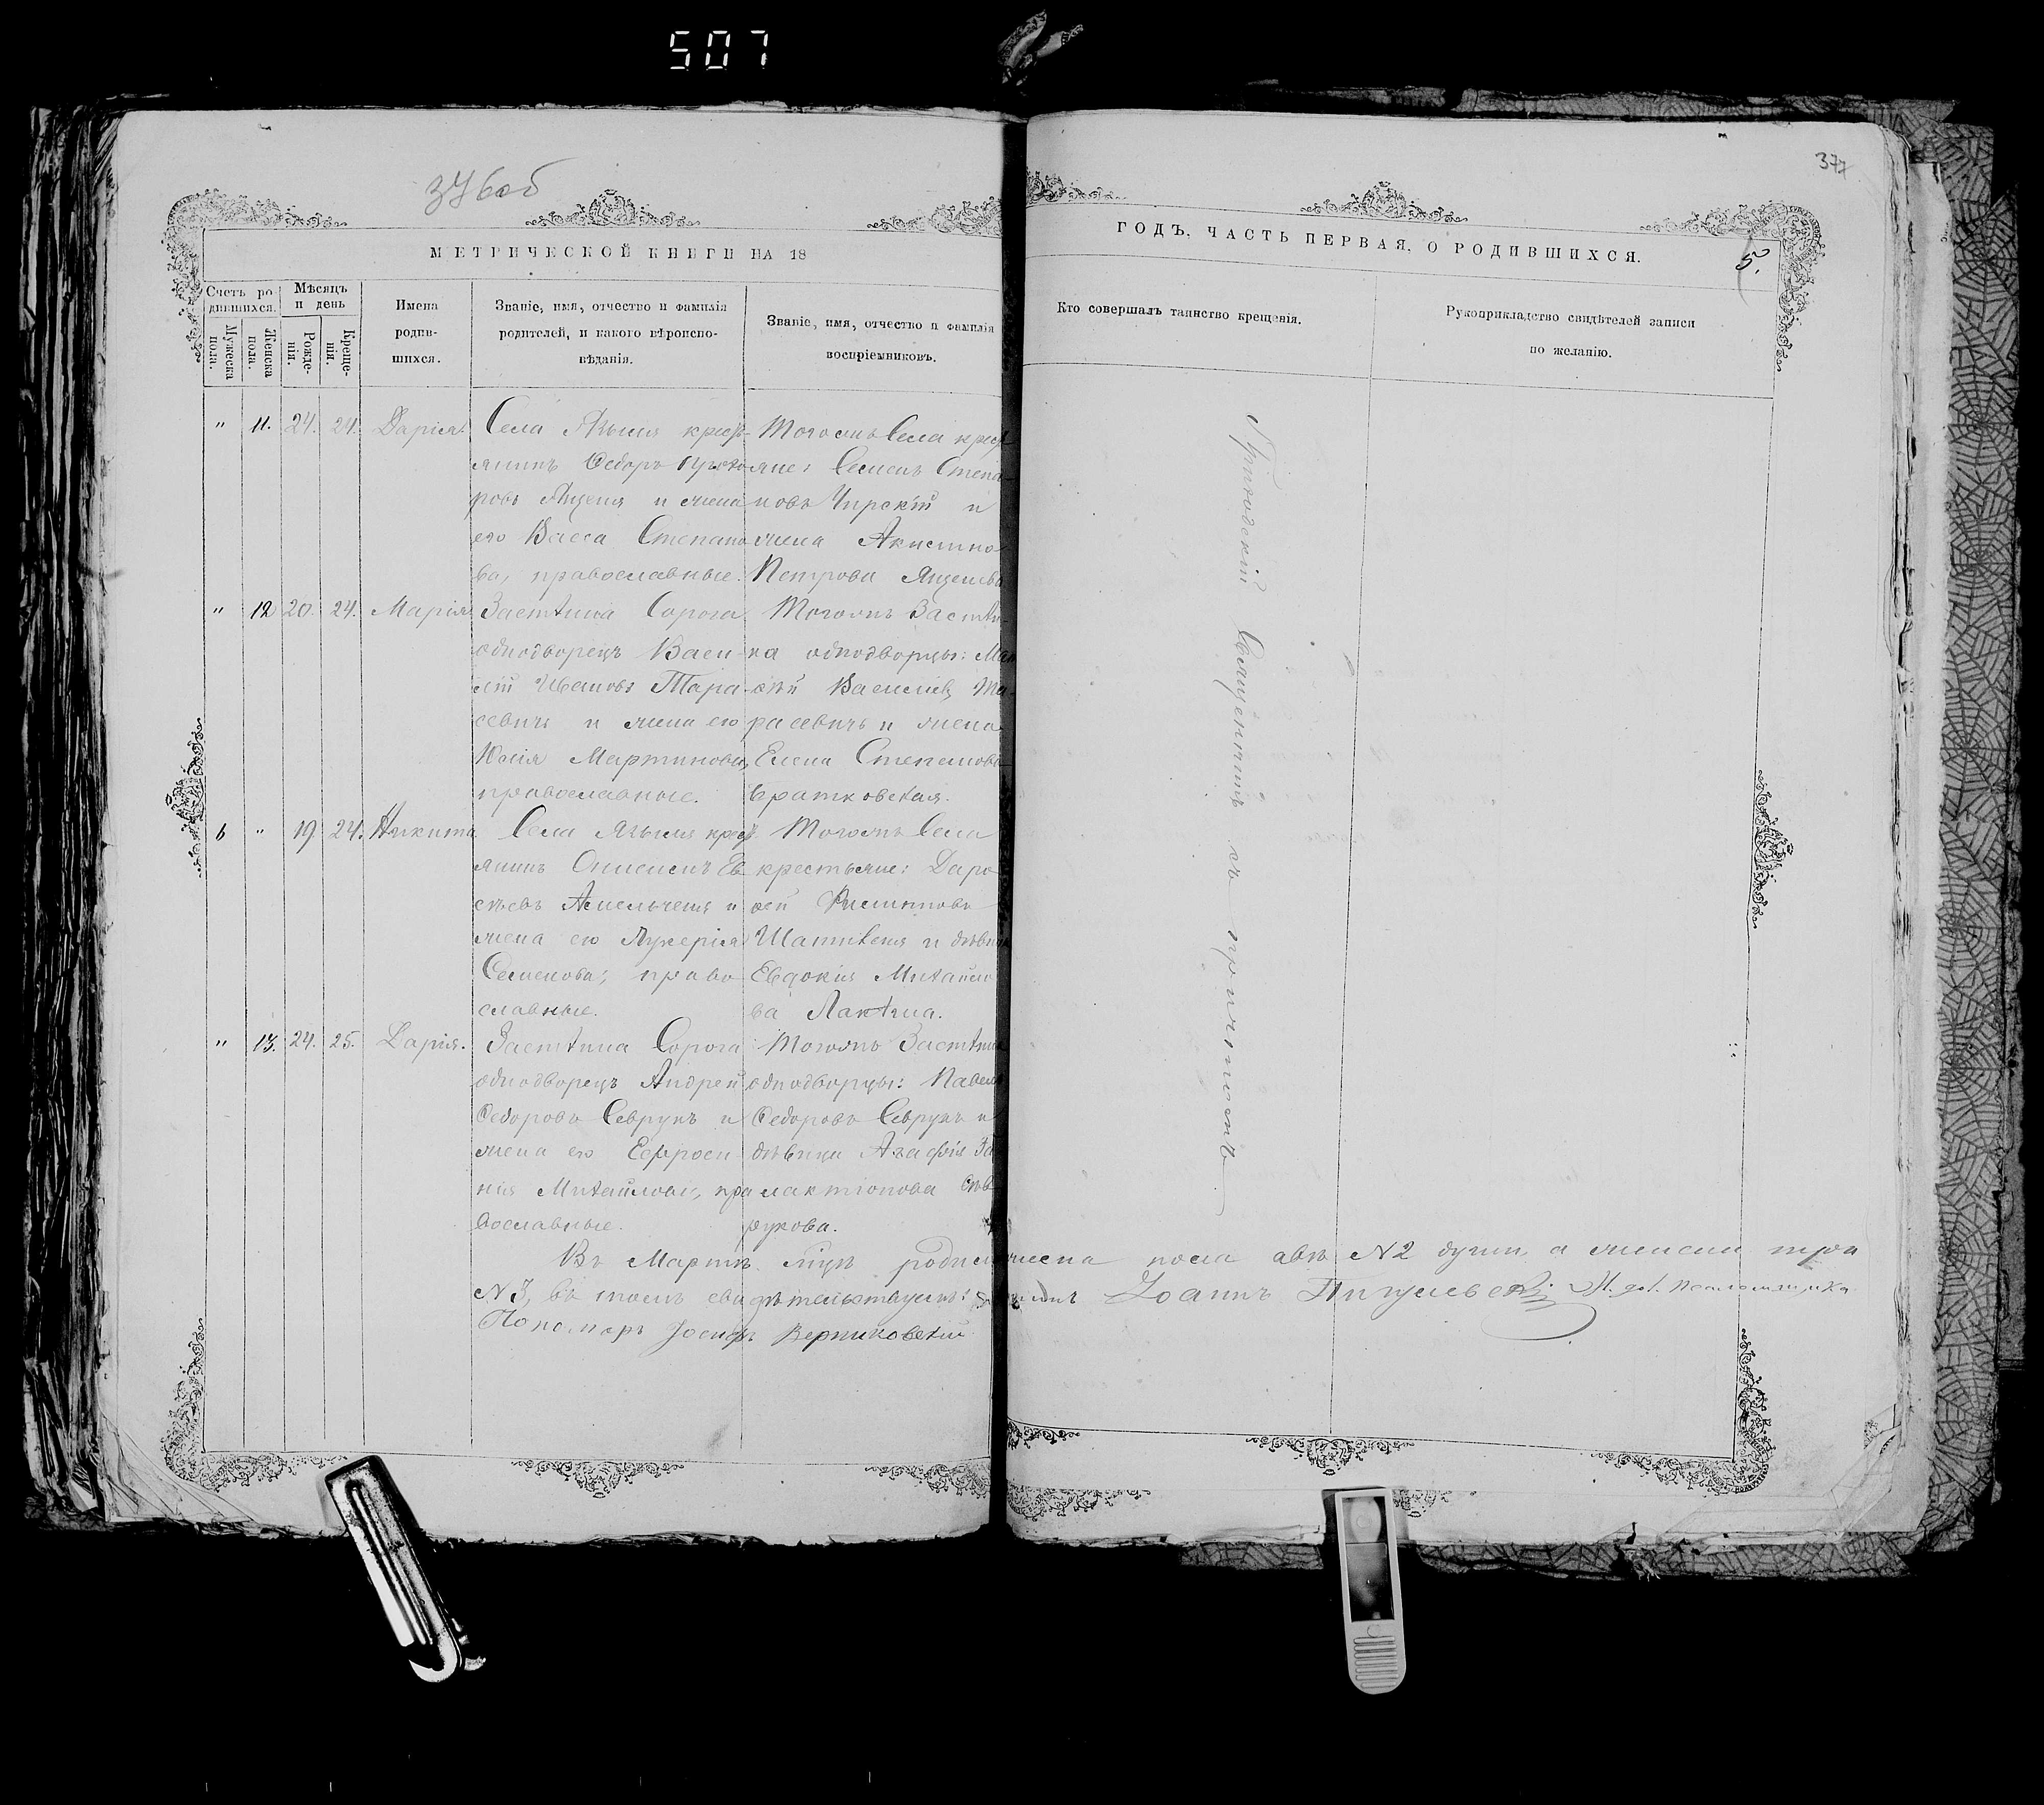 507
376об
377
МЕТРИЧЕСКОЙ КНИГИ НА 18
ГОДЪ, ЧАСТЬ ПЕРВАЯ, О РОДИВШИХСЯ.
5.
Счетъ ро-
дившихся.
Мужеска
пола.
Женска
пола.
Мѣсяцъ
и день
Рожде-
нія.
Креще-
нія.
Имена
родив-
шихся.
Званіе, имя, отчество и фамилія
родителей, и какого вѣроиспо-
вѣданія.
Званіе, имя, отчество и фамилія
воспріемниковъ.
Кто совершалъ таинство крещенія.
Рукоприкладство свидѣтелей записи
по желанію.
" 11. 24. 24. Дарія.
Села Языля крест-
янинъ Ѳедоръ
и жена
его Васса Степано
ва, православные.
Тогожъ Села крест
яне: Семенъ Степа-
новъ Чирскій и
жена
Петрова
" 12 20. 24. Марія
Застѣнка Сорога
однодворецъ Васи-
лій Ивановъ Тара-
севичъ и жена его
Юлія Мартинова,
православные.
Тогожъ Застѣн-
ка однодворцы:
Василіевъ Та-
расевичъ и жена
Елена Степанова
Братковская.
6 " 19 24. Никита
Села Языля крест
янинъ Онисимъ Ев
сѣевъ Амельченя и
жена его Лукерія
Семенова, право
славные.
Тогожъ Села
крестьяне: Даро
ѳей Филипповъ
и дѣвица
Евдокія Михайло
ва
" 13. 24. 25. Дарія.
Застѣнка Сорога
однодворецъ Андрей
Ѳедоровъ Севрукъ и
жена его Ефроси-
нія Михайлова, пра
вославные.
Тогожъ Застѣнка
однодворцы: Павелъ
Ѳедоровъ Севрукъ и
дѣвица Агафія Га
лактіонова Сев
рукова.
Священникъ съ причтомъ
Въ Мартѣ родилось
пола двѣ №2 души, а женска три
№3, въ томъ свидѣтельствуемъ:
Іоаннъ
И. д. Псаломщика
Пономарь Іосифъ Верниковскій